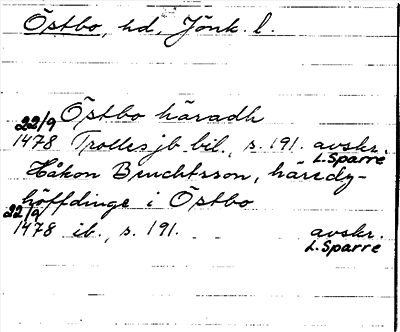 Östbo, hd, Jönk. l.
Östbo häradh
22/9
1478 Trolles jb bil., s. 191. avskr.
L. Sparre
Håkon Bruchtsson, häredz-
höffdinge i Östbo
22/9
1478 ib., s. 191. avskr.
L. Sparre